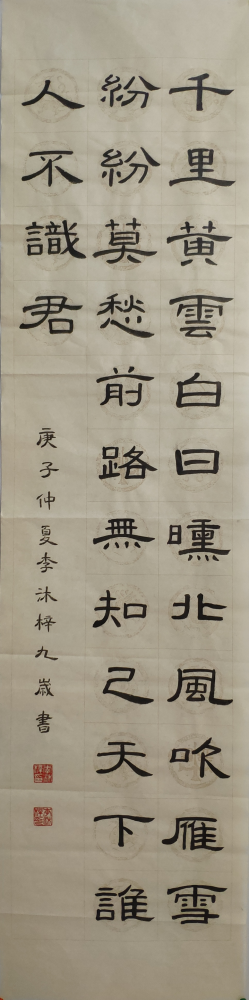 千里黃雲白日曛北風吹雁雪
紛紛莫愁前路無知己天下誰
人不識君
庚子仲夏李沐梓九歲書